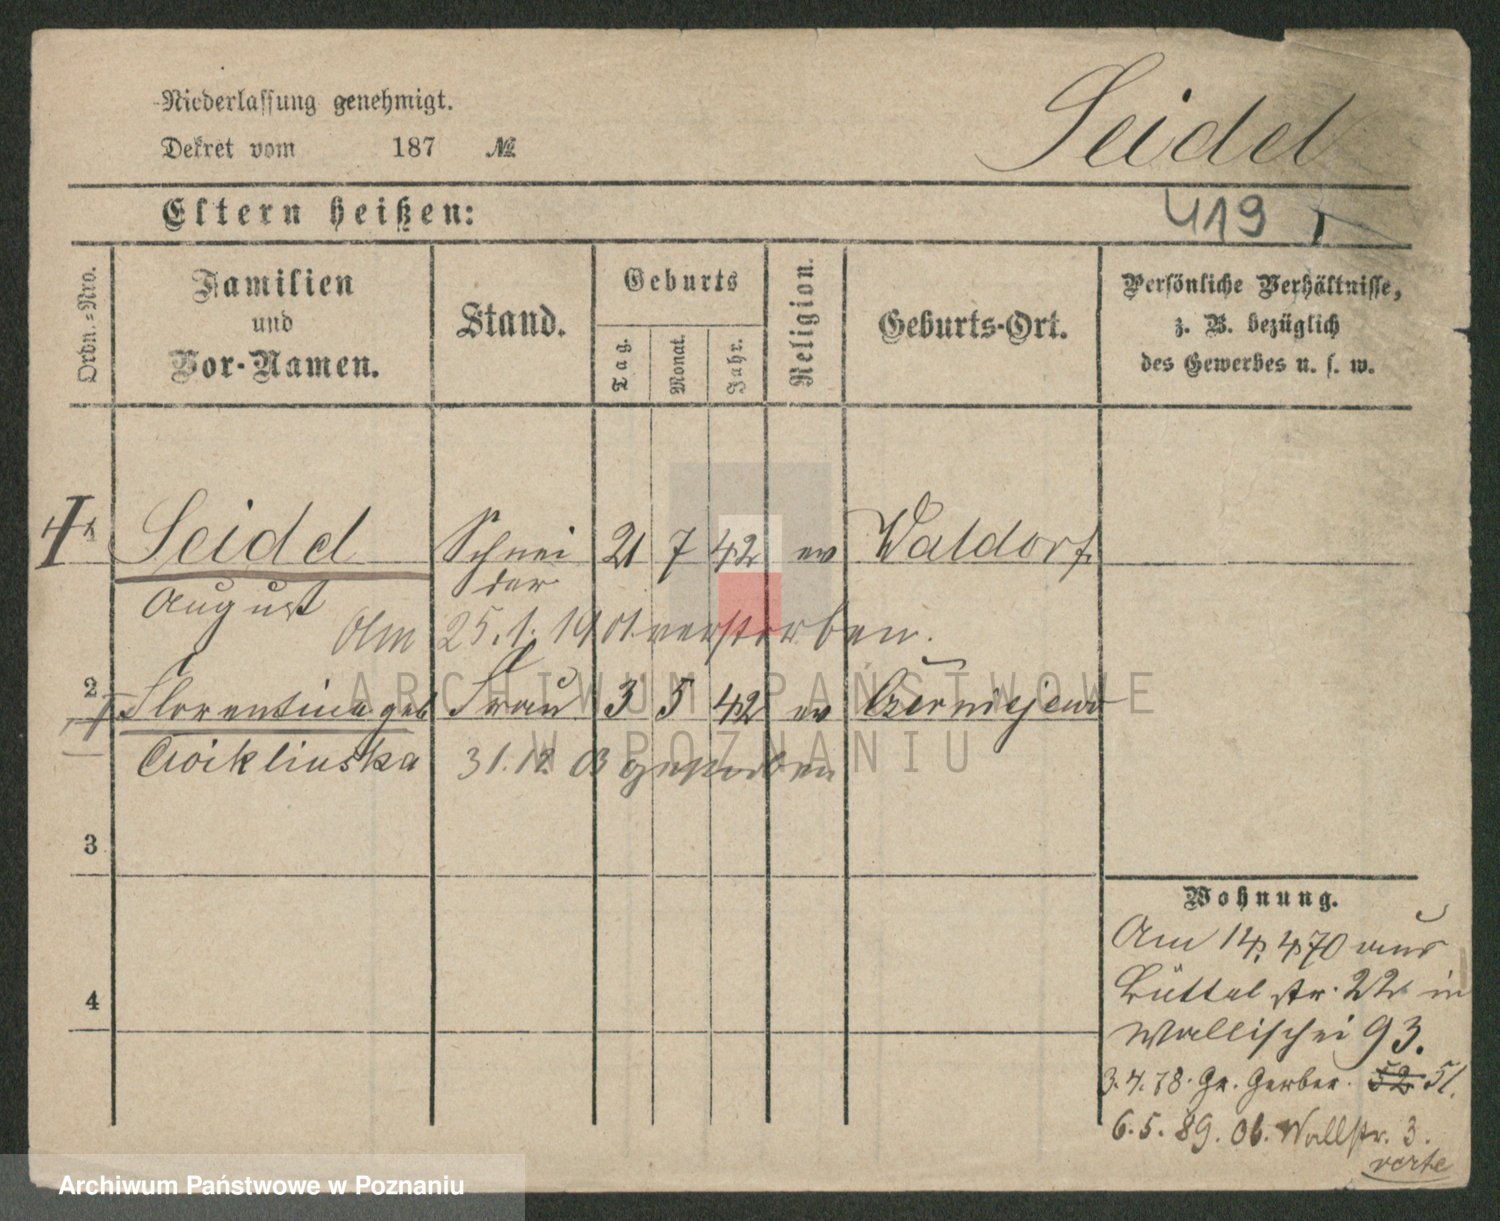 Niederlassung genehmigt.
Dekret vom 187 №
Seidel
Eltern heißen:
419
Ordn.-Nro.
Familien
und
Vor-Namen.
Stand.
Geburts
Tag.
Monat.
Jahr.
Religion.
Geburts-Ort.
Persönliche Verhältnisse,
z. B. bezüglich
des Gewerbes u. s. w.
1 Seidel Schnei 21 7 42 ev Waldorf
der
August
Am 25.1.1901 verstorben.
2 Florentine geb Frau 3 5 42 ev Czerniejewo
Cwiklinska 31.12.03 gestorben
3
4
Wohnung.
Am 14.4.70 aus
Büttel str. 22 in
Wallischei 93.
3.4.78. Gr. Gerber. 52 51.
6.5.89. Ob. Wallstr. 3.
verte
ARCHIWUM PAŃSTWOWE
W POZNANIU
Archiwum Państwowe w Poznaniu